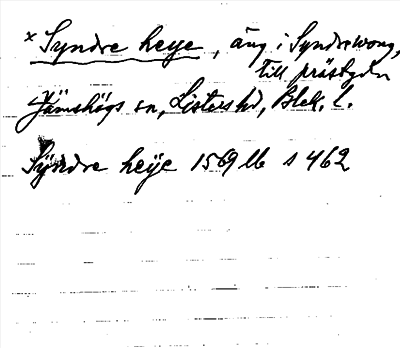 × Syndre heye, äng i Syndrewong,
till prästgden
Jämshögs sn, Listers hd, Blek. l.
Syndre heÿe 1569 lb s 462